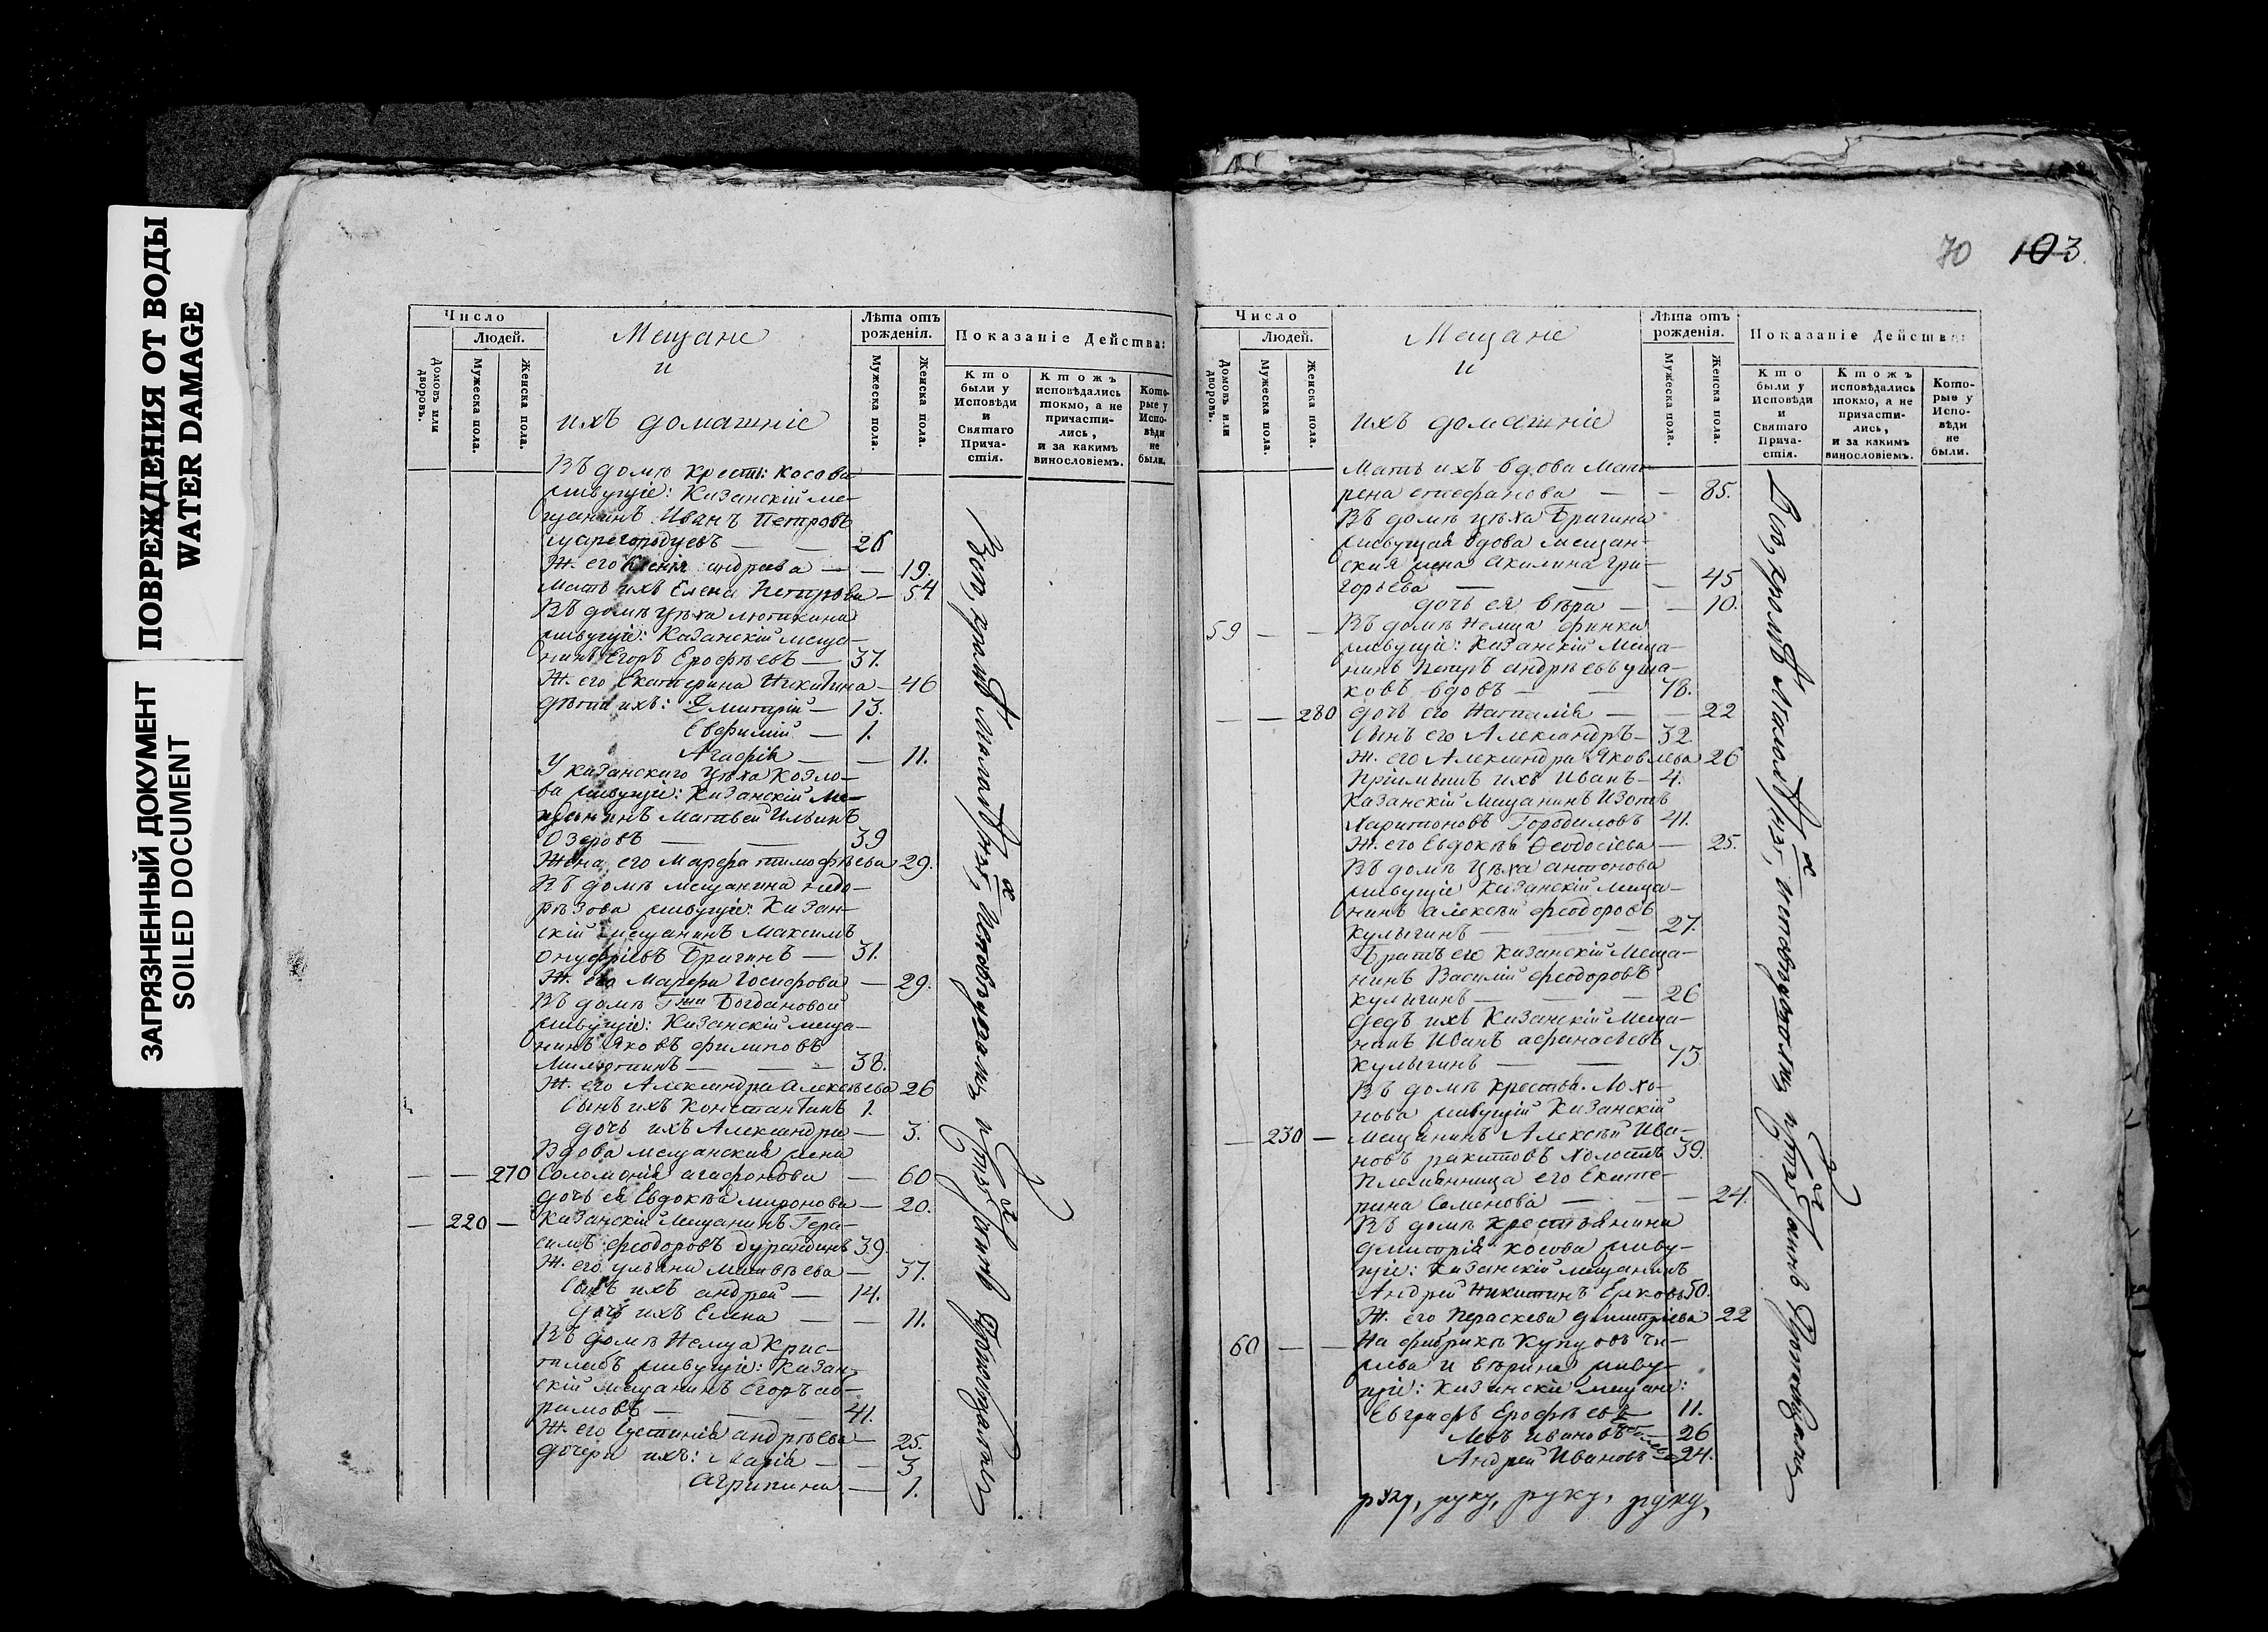 ПОВРЕЖДЕНИЯ ОТ ВОДЫ
WATER DAMAGE
ЗАГРЯЗНЕННЫЙ ДОКУМЕНТ
SOILED DOCUMENT
Число
Людей.
Домовъ или дворовъ.
Мужеска пола.
Женска пола.
Мещане
и
ихъ домашніе
Лѣта отъ рожденія.
Мужеска пола.
Женска пола.
Показаніе Действа:
Кто были у Исповѣди и Святаго Причастія.
Ктожъ исповѣдались токмо, а не причастились, и за какимъ винословіемъ.
Которые у Исповѣди не были.
Въ домѣ крест: Косова
живущіе: Казанскій ме-
щанинъ Иванъ Петровъ
Царегородцевъ — — 26
Ж. его Ксенія андреева — — 19.
Мать ихъ Елена Петрова — 54
Въ домѣ цѣха
живущіе: Казанскій меща-
нинъ Егоръ Ерофѣевъ — 37.
Ж. его Екатерина Никитина — 46
Дѣти ихъ: Дмитрій — 13.
Евфимій — 1.
Агафія — — 11.
У казанскаго цѣха Козло-
ва живущіе: Казанскій Ме-
щанинъ Матвей Ильинъ
Озеровъ — — 39
Жена его Марфа тимофѣева 29.
Въ домѣ мещанина недо-
рѣзова живущіе: Казан-
скій мещанинъ Максимъ
онуфріевъ Бригинъ — 31.
Ж. его Марфа Іосифова — 29.
Въ домѣ Гжи Богдановой
живущіе: Казанскій меща-
нинъ Яковъ филиповъ
Милютинъ — — 38.
Ж. его Александра Алексѣева 26
Сынъ ихъ Константинъ 1.
дочь ихъ Александра — 3.
Вдова мещанская жена
— — 270 Соломонія агафонова — 60
дочь ея Евдокѣя миронова — 20.
— 220 — Казанскій Мещанинъ Гера-
симъ феодоровъ 39.
Ж. его ульяна матвѣева — 37.
Сынъ ихъ андрей — 14.
дочь ихъ Елена — — 11.
Въ домѣ Немца Крис-
живущіе: Казан-
скій мещанинъ Егоръ аб-
рамовъ — — 41.
Ж. его Іустинія андрѣева — 25.
дочери ихъ: Марія — — 3
агрипина — 1.
70 103.
Число
Людей.
Домовъ или дворовъ.
Мужеска пола.
Женска пола.
Мещане
и
ихъ домашніе
Лѣта отъ рожденія.
Мужеска пола.
Женска пола.
Показаніе Действа:
Кто были у Исповѣди и Святаго Причастія.
Ктожъ исповѣдались токмо, а не причастились, и за какимъ винословіемъ.
Которые у Исповѣди не были.
Мать ихъ вдова Мат-
рена стефанова — — 85.
Въ домѣ цѣха Бригина
живущая вдова мещан-
ская жена Акилина Гри-
горьева — — — 45
дочь ея вѣра — — 10.
59 — — Въ домѣ Немца финка
живущіе: Казанскій Меща-
нинъ Петръ андрѣевъ уша-
ковъ вдовъ — — 78.
— — 280 дочь его Наталія — — 22
Сынъ его Александръ — 32.
Ж. его Александра Яковлева 26
Пріимышъ ихъ Иванъ — 4.
Казанскій Мещанинъ Изотъ
Харитоновъ Городиловъ 41.
Ж. его Евдокѣя Ѳеодосіева — 25.
Въ домѣ цѣха антонова
живущіе Казанскій меща-
нинъ алексѣй феодоровъ
Кулыгинъ — — 27.
Братъ его Казанскій Меща-
нинъ Василій феодоровъ
Кулыгинъ — — 26
Дедъ ихъ Казанскій Меща-
нинъ Иванъ афанасьевъ
Кулыгинъ — — 75
Въ домѣ крестья. Лохо-
нова живущій Казанскій
— 230 — Мещанинъ Алексѣй Ива-
новъ ракитовъ холостъ 39.
Племянница его Екате-
рина Семенова — — 24.
Въ домѣ крестьянина
дмитрія косова живу-
щіе: Казанскій мещанинъ
Андрей Никитинъ 50.
Ж. его Параскева димитріева 22
60 — — На фабрикѣ Купцовъ
и живу-
щіе: Казанскіе мещане:
Евграфъ Ерофѣевъ 11.
Левъ ивановъ — 26
Андрей Ивановъ — 24.
руку, руку, руку, руку,